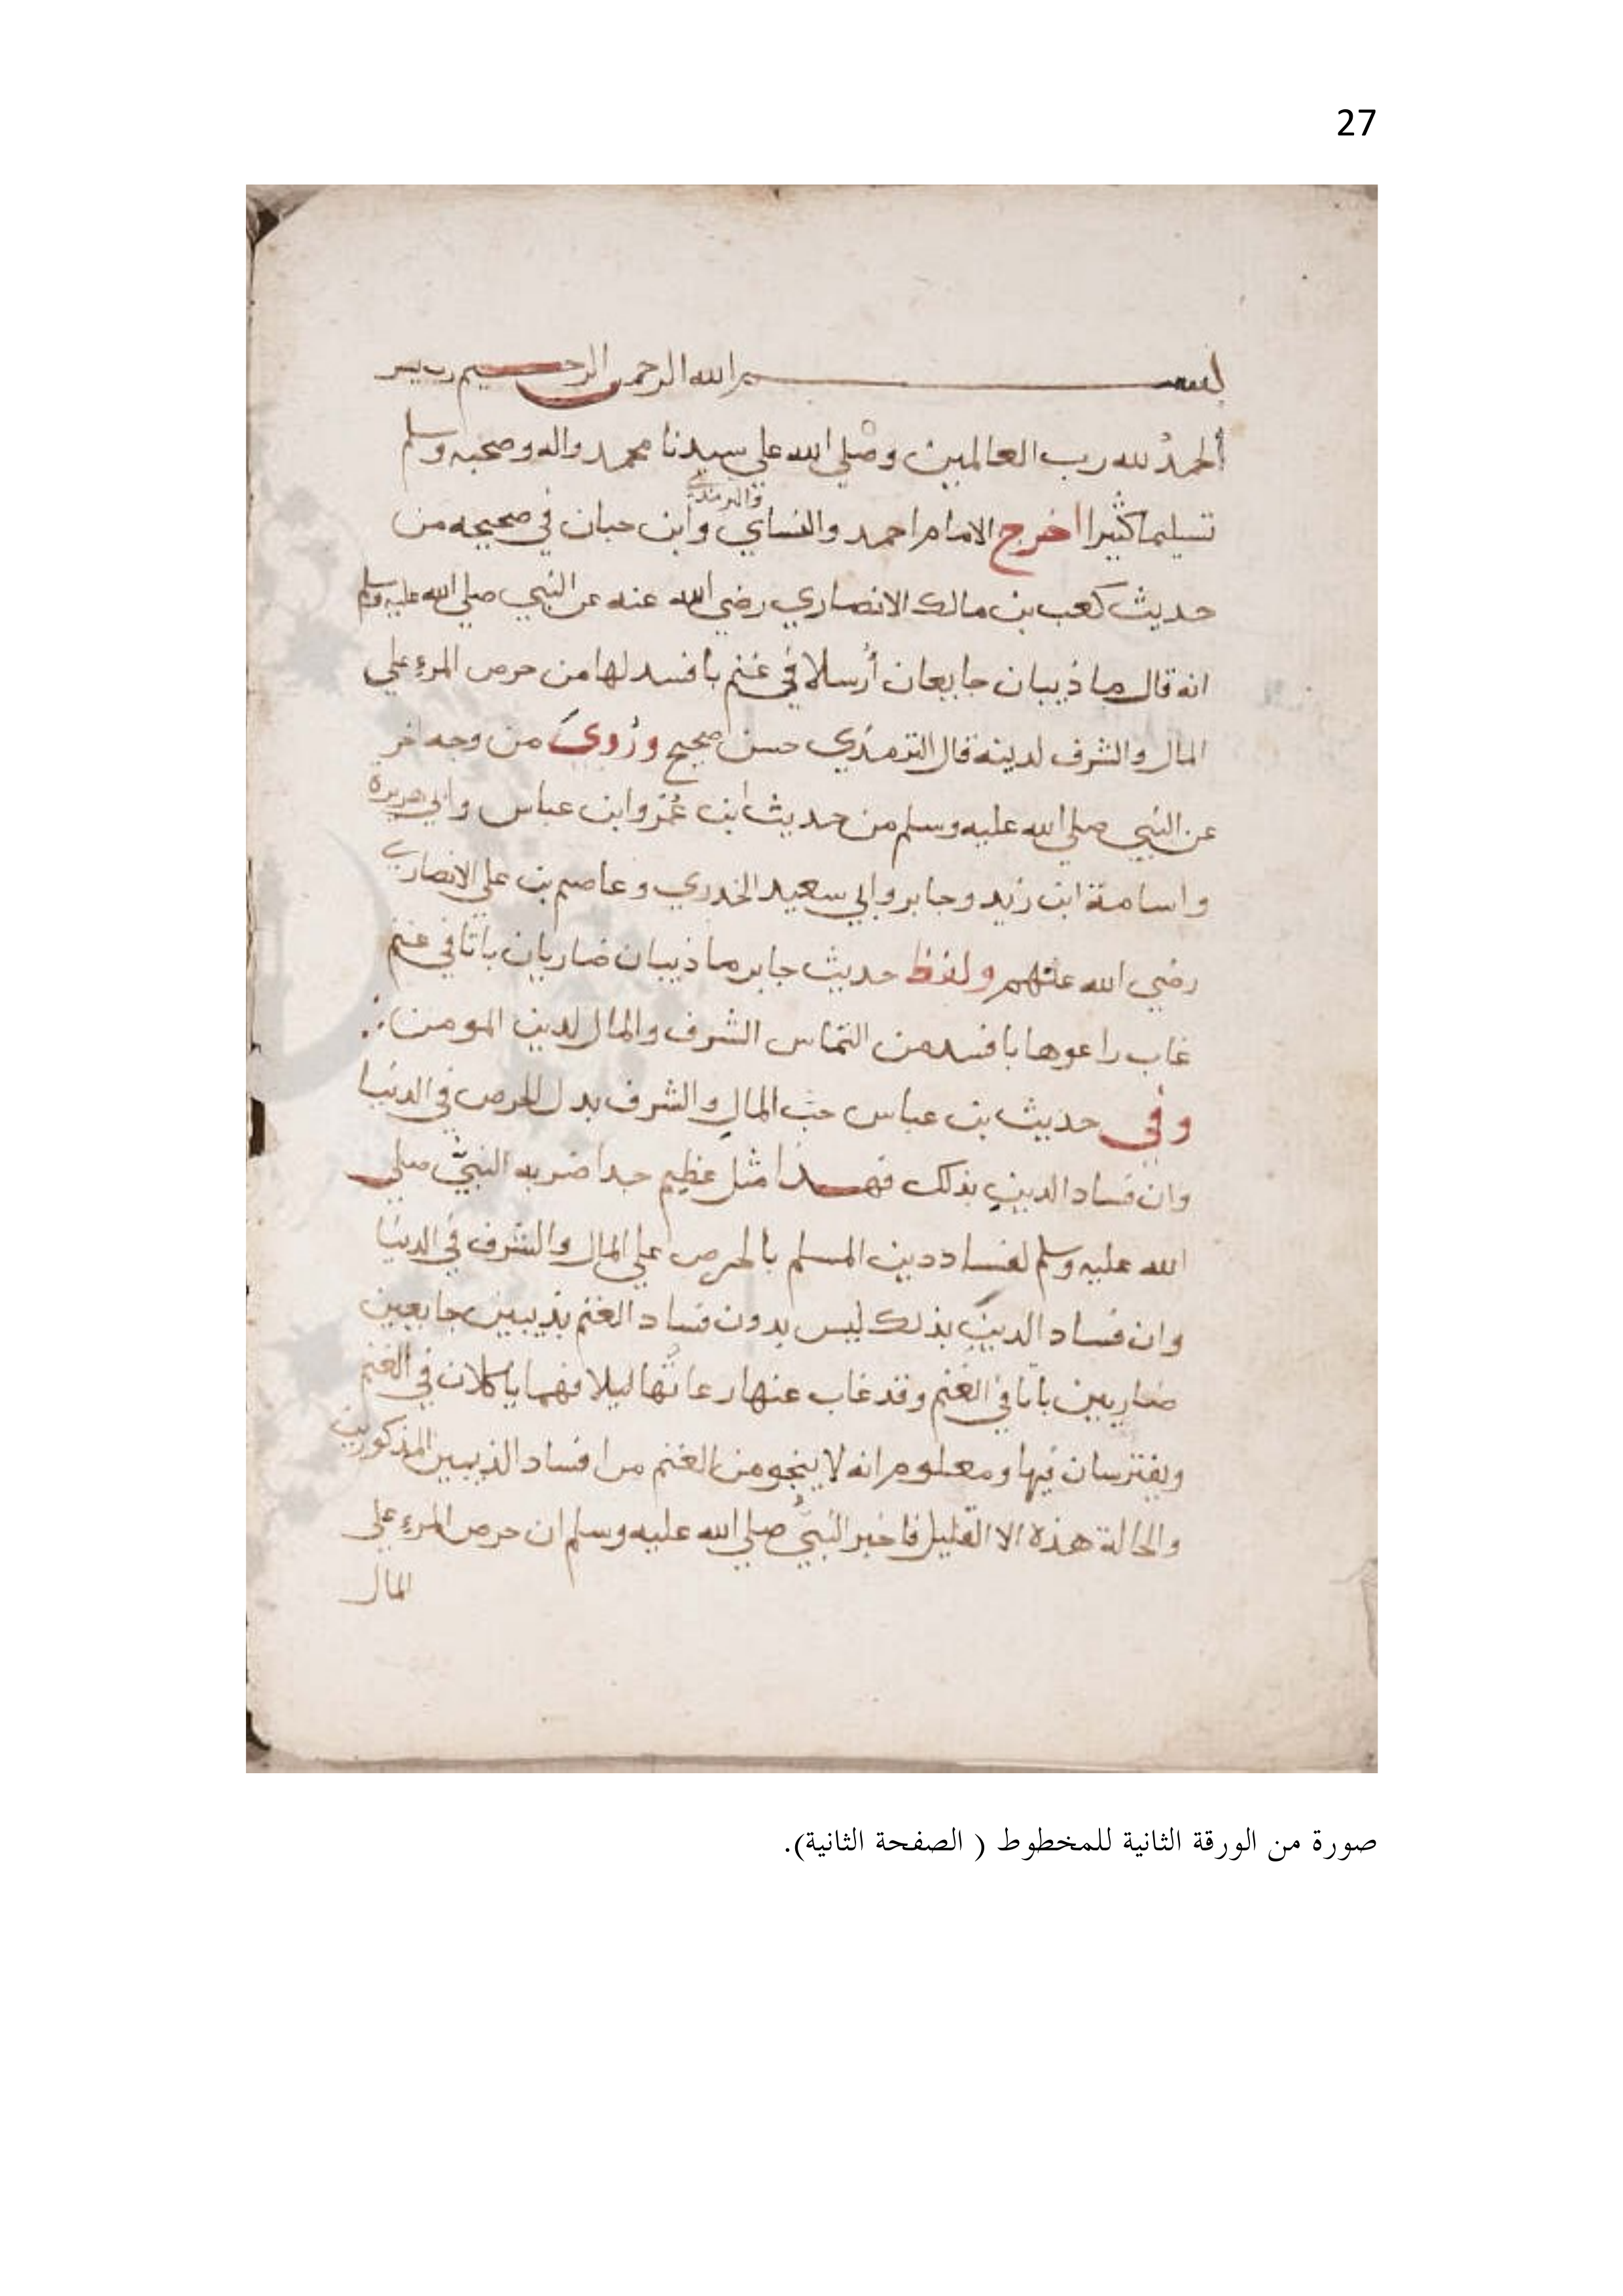 27
بسم الله الرحمن الرحيم رب يسر
ألحمدُ لله رب العالمين وصلي الله علي سيدنا محمد واله وصحبه وسلم
والترمذي
تسليما كثيرا اخرج الامام احمد والنساي وابن حبان في صحيحه من
حديث كعب بن مالك الانصاري رضي الله عنه عن النبي صلي الله عليه وسلم
انه قال ما ذيبان جايعان أُرسلا في غنم بافسد لها من حرص المرء علي
المال والشرف لدينه قال الترمذي حسن صحيح ورُوي من وجه اخر
عن النبي صلي الله عليه وسلم من حديث ابن عُمر وابن عباس وابي هريرة
واسامة ابن زيد وجابر وابي سعيد الخدري وعاصم بن علي الانصاري
رضي الله عنهم ولفظ حديث جابر ما ذيبان ضاريان باتا في غنم
غاب راعوها بافسد من التماس الشرف والمال لدين المومن
وفي حديث بن عباس حب المال والشرف بدل الحرص في الدنيا
وان فساد الدين بذلك فهذا مثل عظيم جدا ضربه النبي صلي
الله عليه وسلم لفساد دين المسلم بالحرص علي المال والشرف في الدنيا
وان فساد الدين بذلك ليس بدون فساد الغنم بذيبين جايعين
ضاريين باتا في الغنم وقد غاب عنها رعاتها ليلا فهما ياكلان في الغنم
ويفترسان فيها ومعلوم انه لا ينجو من الغنم من افساد الذيبين المذكورين
والحالة هذه الا القليل فاخبر النبي صلي الله عليه وسلم ان حرص المرء علي
المال
صورة من الورقة الثانية للمخطوط ( الصفحة الثانية).